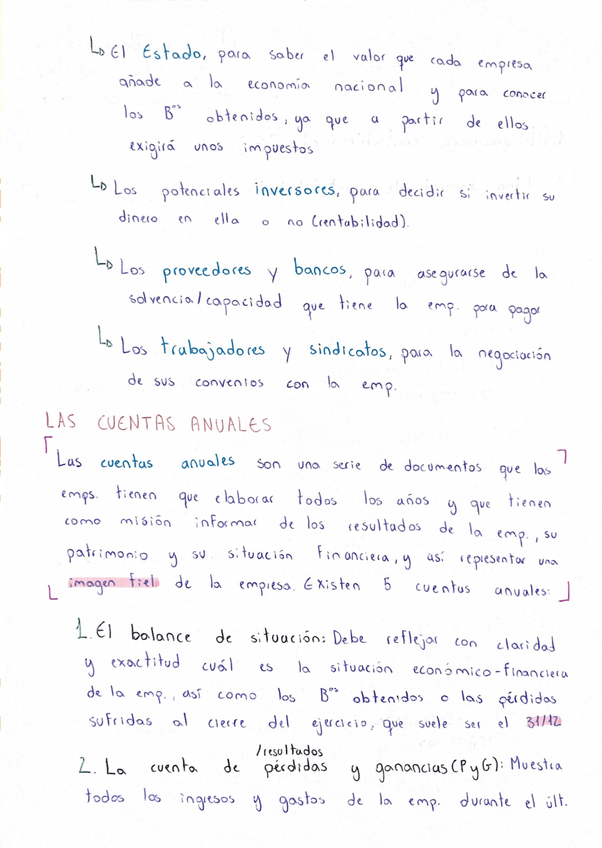 ↳ El Estado, para saber el valor que cada empresa
añade a la economía nacional y para conocer
los Bºˢ obtenidos, ya que a partir de ellos
exigirá unos impuestos
↳ Los potenciales inversores, para decidir si invertir su
dinero en ella o no (rentabilidad).
↳ Los proveedores y bancos, para asegurarse de la
solvencia/capacidad que tiene la emp. para pagar
↳ Los trabajadores y sindicatos, para la negociación
de sus convenios con la emp.
LAS CUENTAS ANUALES
Las cuentas anuales son una serie de documentos que las
emps. tienen que elaborar todos los años y que tienen
como misión informar de los resultados de la emp., su
patrimonio y su situación financiera, y así representar una
imagen fiel de la empresa. Existen 5 cuentas anuales:
1. El balance de situación: Debe reflejar con claridad
y exactitud cuál es la situación económico-financiera
de la emp., así como los Bºˢ obtenidos o las pérdidas
sufridas al cierre del ejercicio, que suele ser el 31/12
/resultados
2. La cuenta de pérdidas y ganancias (PyG): Muestra
todos los ingresos y gastos de la emp. durante el últ.